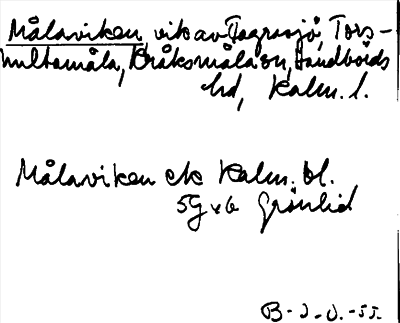 Målaviken, vik av Fagrasjö, Tors-
hultamåla, Kråksmåla sn, Handbörds
hd, Kalm. l.
Målaviken ek Kalm. bl.
5G x6 Grönlid
B-J.O.-55.